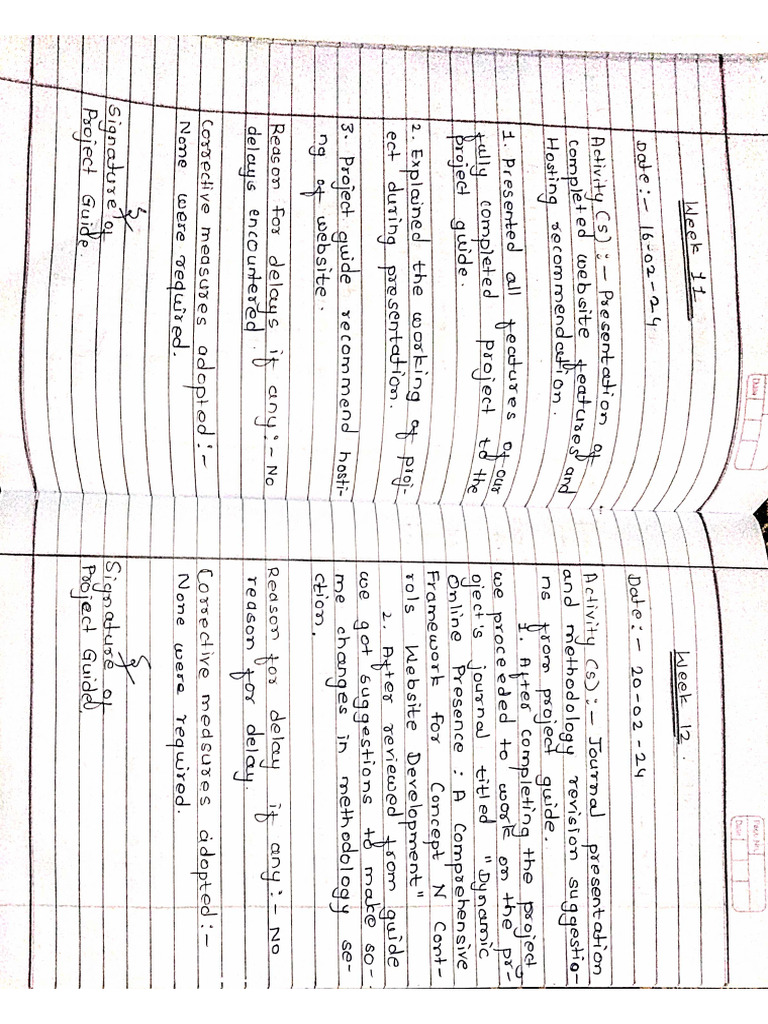 Week 11
Date:- 16-02-24
Activity(s):- Presentation of
completed website features and
Hosting recommendation.
1. Presented all features of our
fully completed project to the
project guide.
2. Explained the working of proj-
ect during presentation.
3. Project guide recommend hosti-
ng of website.
Reason for delays if any:- No
delays encountered.
Corrective measures adopted:-
None were required.
Signature of
Project Guide.
Date
Week 12.
Date:- 20-02-24
Activity(s):- Journal presentation
and methodology revision suggestio-
ns from project guide.
1. After completing the project
we proceeded to work on the pr-
oject's journal titled "Dynamic
Online Presence: A Comprehensive
Framework for Concept N Cont-
rols Website Development"
2. After reviewed from guide
we got suggestions to make so-
me changes in methodology se-
ction.
Reason for delay if any:- No
reason for delay.
Corrective medsures adopted:-
None were required.
Signature of
Project Guide
Page No.
Date